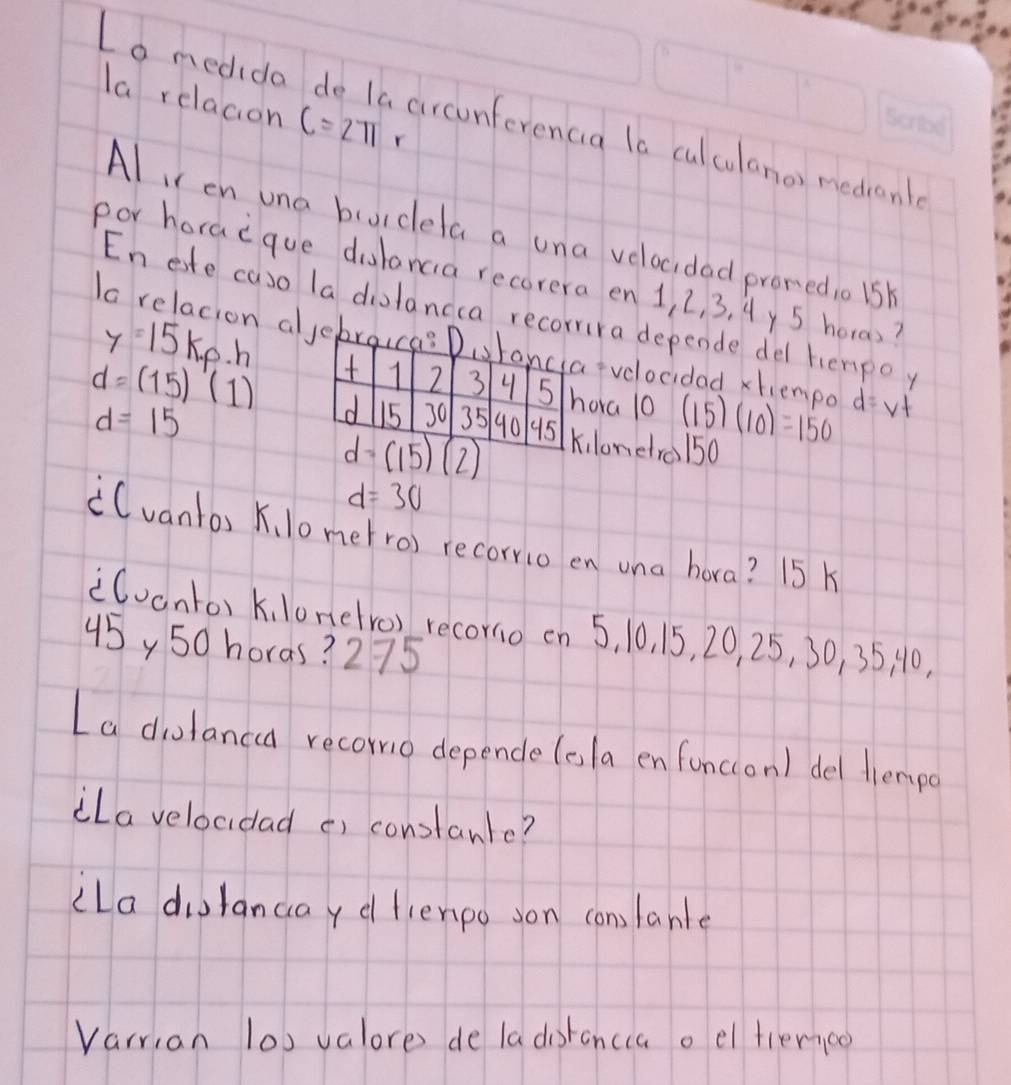 Lo medida de la circunferencia la calculamos mediante
la relacion C=2π r
Al ir en una bicicleta a una velocidad promedio 15k
por hora ¿que distancia recorera en 1,2,3,4 y 5 horas?
En este caso la distancia recorrira depende del tiempo y
la relacion aljebraica: Distancia = velocidad x tiempo d=vt
y=15 K.p.h
t 1 2 3 4 5 hora 10 (15)(10)=150
d=(15) (1)
d 15 30 35 40 45 Kilometro 150
d=15
d=(15)(2)
d=30
¿Cuantos Kilometros recorrio en una hora? 15 K
¿Cuantos Kilometros recorrio en 5,10,15,20,25,30,35,40,
45 y 50 horas? 275
La distancia recorrio depende (esla en funcion) del tiempo
¿La velocidad es constante?
¿La distancia y el tiempo son constante
Varrian los valores de la distancia o el tiempo
Scribe